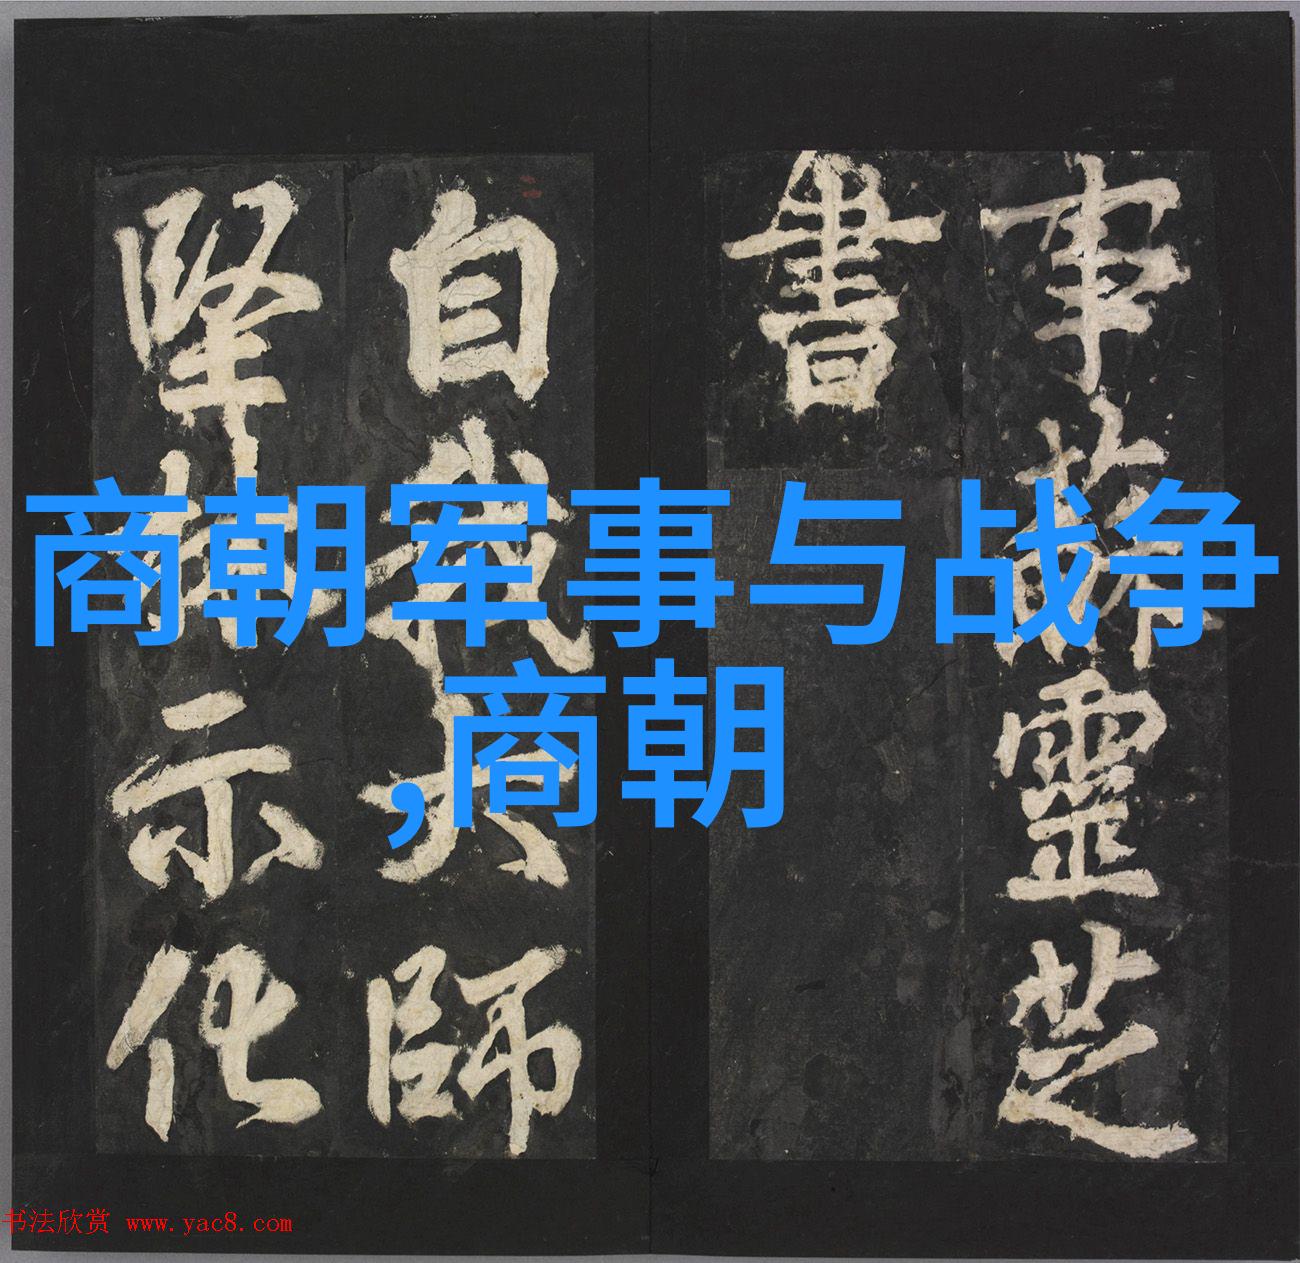 事蘇靈芝
書
自我大師
堅林示化
商朝军事与战争
,商朝
书法欣赏 www.yac8.com